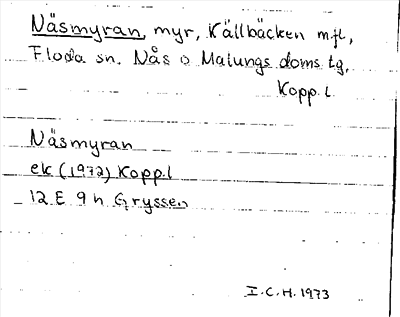 Näsmyran, myr, Källbäcken mfl,
Floda sn. Nås o Malungs doms.tg,
Kopp. l.
Näsmyran
ek (1972) Kopp.l
12 E 9 h Gryssen
I.C.H. 1973